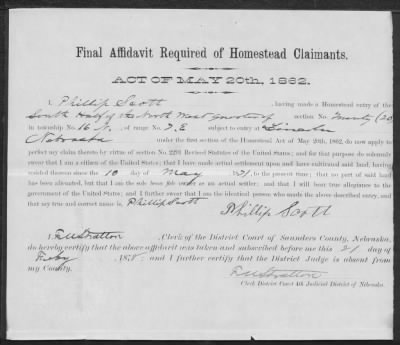 Final Affidavit Required of Homestead Claimants.
ACT OF MAY 20th, 1862.
I, Phillip Scott, having made a Homestead entry of the
South Half of the North West quarter of section No. Twenty (20
in township No. 16 N, of range No. 7 E subject to entry at Lincoln
Nebraska under the first section of the Homestead Act of May 20th, 1862, do now apply to
perfect my claim thereto by virtue of section No. 2291 Revised Statutes of the United States; and for that purpose do solemnly
swear that I am a citizen of the United States; that I have made actual settlement upon and have cultivated said land, having
resided thereon since the 10 day of May 1871, to the present time; that no part of said
land has been alienated, but that I am the sole bona fide owner as an actual settler; and that I will bear true allegiance to the
government of the United States; and I further swear that I am the identical person who made the above described entry, and
that my true and correct name is, Phillip Scott
Phillip Scott
I, F M Stratton, Clerk of the District Court of Saunders County, Nebraska,
do hereby certify that the above affidavit was taken and subscribed before me this 21 day of
Feby, 1878; and I further certify that the District Judge is absent from
my County.
F M Stratton
Clerk District Court 4th Judicial District of Nebraska.